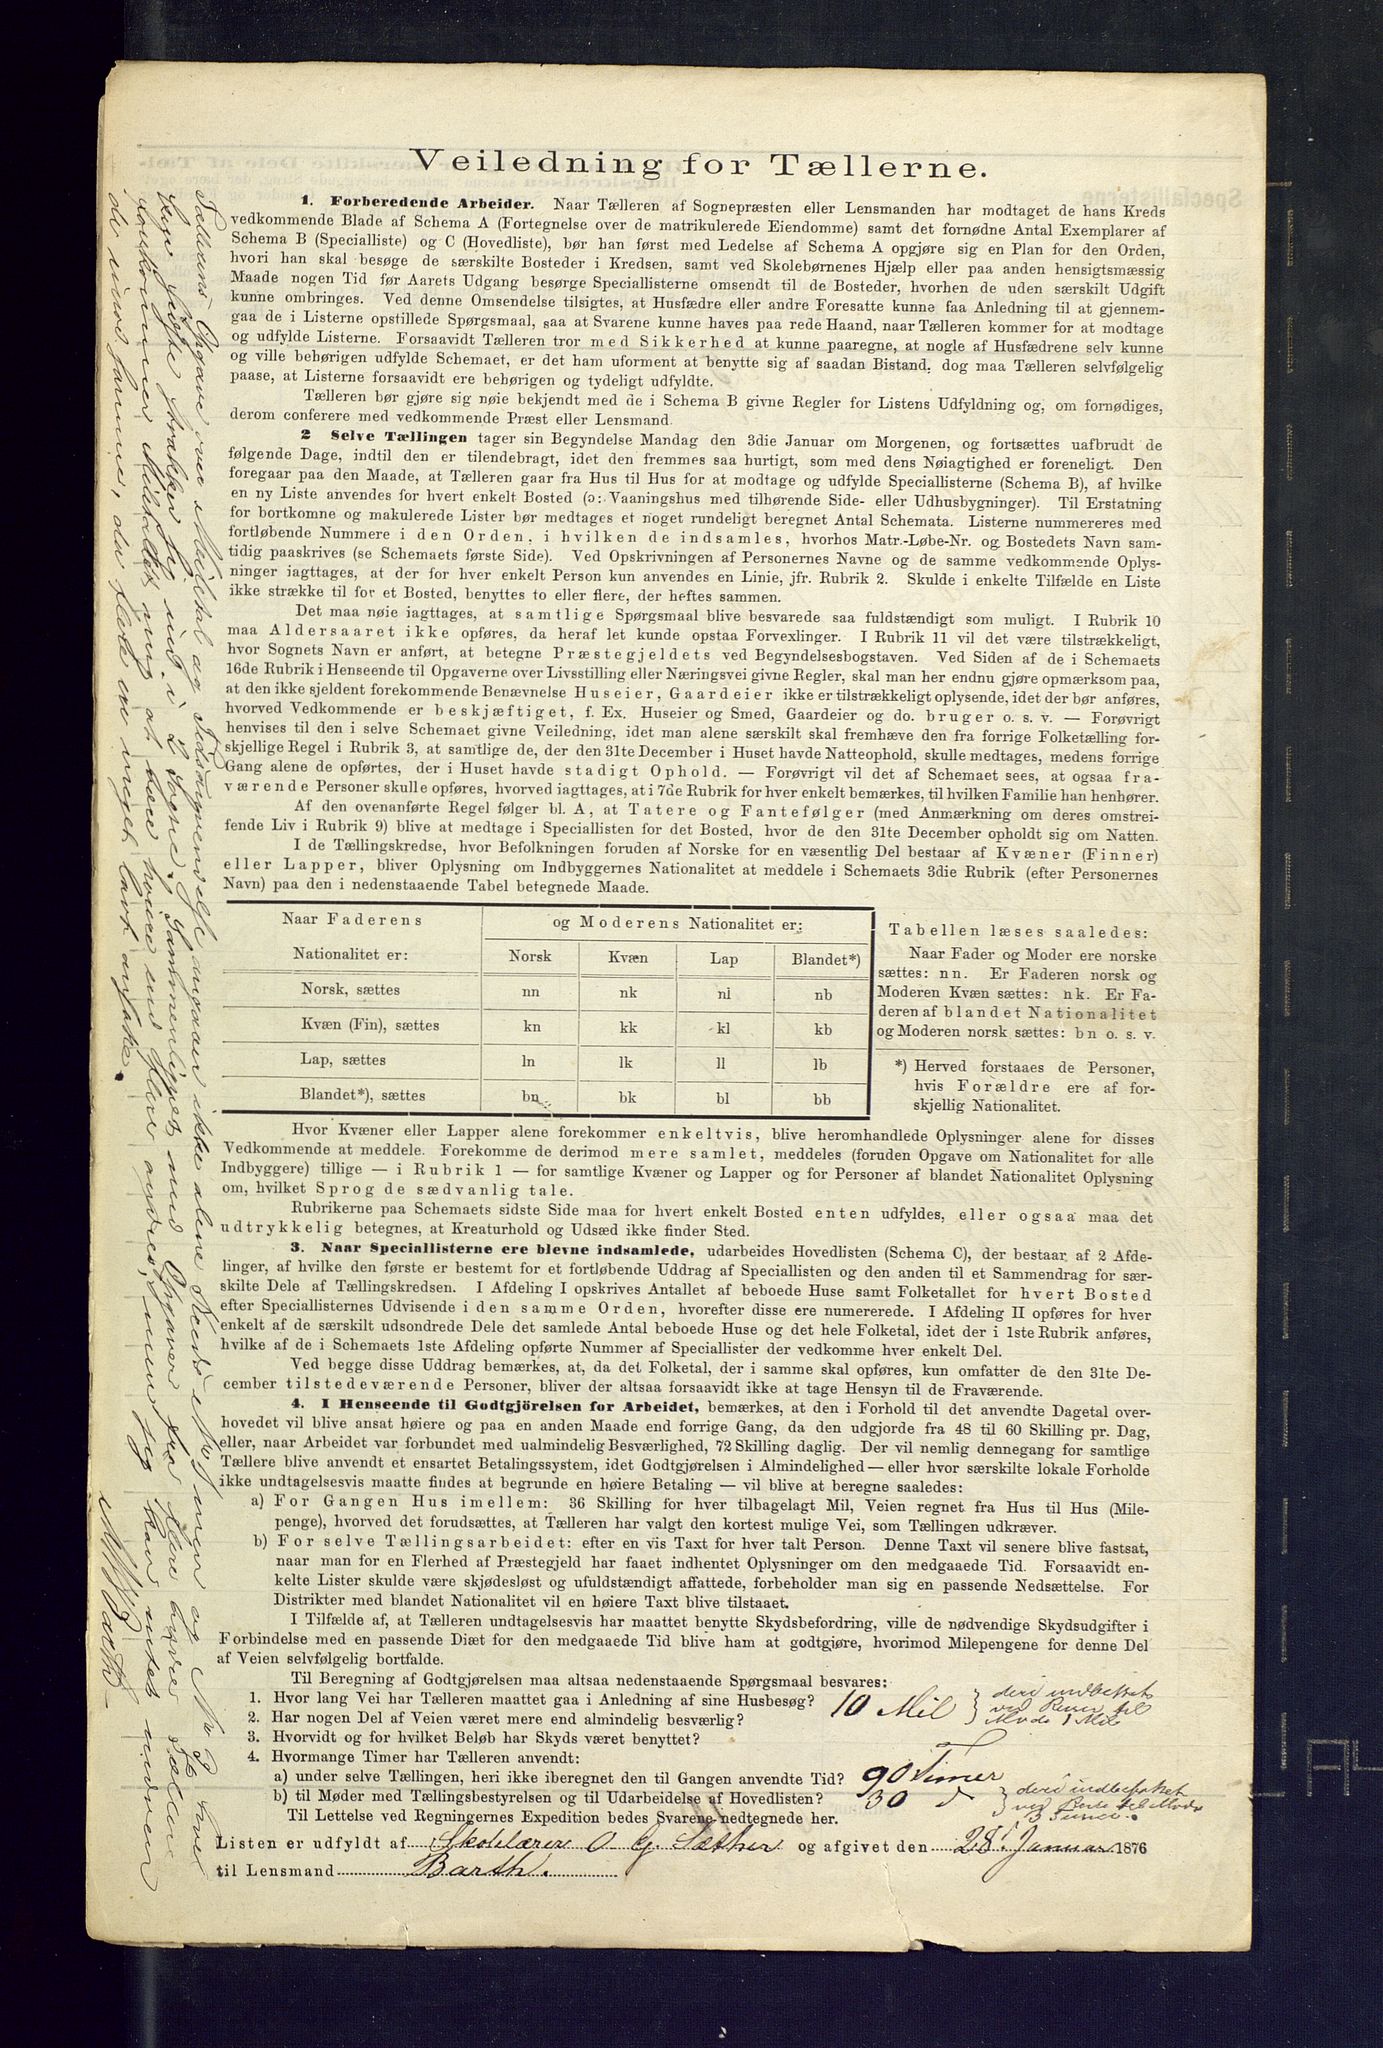 Veiledning for Tællerne.
1. Forberedende Arbeider. Naar Tælleren af Sognepræsten eller Lensmanden har modtaget de hans Kreds
vedkommende Blade af Schema A (Fortegnelse over de matrikulerede Eiendomme) samt det fornødne Antal Exemplarer af
Schema B (Specialliste) og C (Hovedliste), bør han først med Ledelse af Schema A opgjøre sig en Plan for den Orden,
hvori han skal besøge de særskilte Bosteder i Kredsen, samt ved Skolebørnenes Hjælp eller paa anden hensigtsmæssig
Maade nogen Tid før Aarets Udgang besørge Speciallisterne omsendt til de Bosteder, hvorhen de uden særskilt Udgift
kunne ombringes. Ved denne Omsendelse tilsigtes, at Husfædre eller andre Foresatte kunne faa Anledning til at gjennem-
gaa de i Listerne opstillede Spørgsmaal, saa at Svarene kunne haves paa rede Haand, naar Tælleren kommer for at modtage
og udfylde Listerne. Forsaavidt Tælleren tror med Sikkerhed at kunne paaregne, at nogle af Husfædrene selv kunne
og ville behørigen udfylde Schemaet, er det ham uforment at benytte sig af saadan Bistand, dog maa Tælleren selvfølgelig
paase, at Listerne forsaavidt ere behørigen og tydeligt udfyldte.
Tælleren bør gjøre sig nøie bekjendt med de i Schema B givne Regler for Listens Udfyldning og, om fornødiges,
derom conferere med vedkommende Præst eller Lensmand.
2 Selve Tællingen tager sin Begyndelse Mandag den 3die Januar om Morgenen, og fortsættes uafbrudt de
følgende Dage, indtil den er tilendebragt, idet den fremmes saa hurtigt, som med dens Nøiagtighed er foreneligt. Den
foregaar paa den Maade, at Tælleren gaar fra Hus til Hus for at modtage og udfylde Speciallisterne (Schema B), af hvilke
en ny Liste anvendes for hvert enkelt Bosted (ɔ: Vaaningshus med tilhørende Side- eller Udhusbygninger). Til Erstatning
for bortkomne og makulerede Lister bør medtages et noget rundeligt beregnet Antal Schemata. Listerne nummereres med
fortløbende Nummere i den Orden, i hvilken de indsamles, hvorhos Matr.-Løbe-Nr. og Bostedets Navn sam-
tidig paaskrives (se Schemaets første Side). Ved Opskrivningen af Personernes Navne og de samme vedkommende Oplys-
ninger iagttages, at der for hver enkelt Person kun anvendes en Linie, jfr. Rubrik 2. Skulde i enkelte Tilfælde en Liste
ikke strække til for et Bosted, benyttes to eller flere, der heftes sammen.
Det maa nøie iagttages, at samtlige Spørgsmaal blive besvarede saa fuldstændigt som muligt. I Rubrik 10
maa Aldersaaret ikke opføres, da heraf let kunde opstaa Forvexlinger. I Rubrik 11 vil det være tilstrækkeligt,
hvor Sognets Navn er anført, at betegne Præstegjeldets ved Begyndelsesbogstaven. Ved Siden af de i Schemaets
16de Rubrik i Henseende til Opgaverne over Livsstilling eller Næringsvei givne Regler, skal man her endnu gjøre opmærksom paa,
at den ikke sjeldent forekommende Benævnelse Huseier, Gaardeier ikke er tilstrækkeligt oplysende, idet der bør anføres,
hvorved Vedkommende er beskjæftiget, f. Ex. Huseier og Smed, Gaardeier og do. bruger o. s. v. — Forøvrigt
henvises til den i selve Schemaet givne Veiledning, idet man alene særskilt skal fremhæve den fra forrige Folketælling for-
skjellige Regel i Rubrik 3, at samtlige de, der den 31te December i Huset havde Natteophold, skulle medtages, medens forrige
Gang alene de opførtes, der i Huset havde stadigt Ophold. — Forøvrigt vil det af Schemaet sees, at ogsaa fra-
værende Personer skulle opføres, hvorved iagttages, at i 7de Rubrik for hver enkelt bemærkes, til hvilken Familie han henhører.
Af den ovenanførte Regel følger bl. A, at Tatere og Fantefølger (med Anmærkning om deres omstrei-
fende Liv i Rubrik 9) blive at medtage i Speciallisten for det Bosted, hvor de den 31te December opholdt sig om Natten.
I de Tællingskredse, hvor Befolkningen foruden af Norske for en væsentlig Del bestaar af Kvæner (Finner)
eller Lapper, bliver Oplysning om Indbyggernes Nationalitet at meddele i Schemaets 3die Rubrik (efter Personernes
Navn) paa den i nedenstaaende Tabel betegnede Maade.
Naar Faderens Nationalitet er: og Moderens Nationalitet er:
Norsk Kvæn Lap Blandet*)
Norsk, sættes nn nk nl nb
Kvæn (Fin), sættes kn kk kl kb
Lap, sættes ln lk ll lb
Blandet*), sættes bn bk bl bb
Tabellen læses saaledes:
Naar Fader og Moder ere norske
sættes: nn. Er Faderen norsk og
Moderen Kvæn sættes: nk. Er Fa-
deren af blandet Nationalitet
og Moderen norsk sættes: bn o. s. v.
*) Herved forstaaes de Personer,
hvis Forældre ere af for-
skjellig Nationalitet.
Hvor Kvæner eller Lapper alene forekommer enkeltvis, blive heromhandlede Oplysninger alene for disses
Vedkommende at meddele. Forekomme de derimod mere samlet, meddeles (foruden Opgave om Nationalitet for alle
Indbyggere) tillige — i Rubrik 1 — for samtlige Kvæner og Lapper og for Personer af blandet Nationalitet Oplysning
om, hvilket Sprog de sædvanlig tale.
Rubrikerne paa Schemaets sidste Side maa for hvert enkelt Bosted enten udfyldes, eller ogsaa maa det
udtrykkelig betegnes, at Kreaturhold og Udsæd ikke finder Sted.
3. Naar Speciallisterne ere blevne indsamlede, udarbeides Hovedlisten (Schema C), der bestaar af 2 Afde-
linger, af hvilke den første er bestemt for et fortløbende Uddrag af Speciallisten og den anden til et Sammendrag for sær-
skilte Dele af Tællingskredsen. I Afdeling I opskrives Antallet af beboede Huse samt Folketallet for hvert Bosted
efter Speciallisternes Udvisende i den samme Orden, hvorefter disse ere numererede. I Afdeling II opføres for hver
enkelt af de særskilt udsondrede Dele det samlede Antal beboede Huse og det hele Folketal, idet der i 1ste Rubrik anføres,
hvilke af de i Schemaets 1ste Afdeling opførte Nummer af Speciallister der vedkomme hver enkelt Del.
Ved begge disse Uddrag bemærkes, at, da det Folketal, der i samme skal opføres, kun omfatter de den 31te De-
cember tilstedeværende Personer, bliver der altsaa forsaavidt ikke at tage Hensyn til de Fraværende.
4. I Henseende til Godtgjörelsen for Arbeidet, bemærkes, at den i Forhold til det anvendte Dagetal over-
hovedet vil blive ansat høiere og paa en anden Maade end forrige Gang, da den udgjorde fra 48 til 60 Skilling pr. Dag,
eller, naar Arbeidet var forbundet med ualmindelig Besværlighed, 72 Skilling daglig. Der vil nemlig dennegang for samtlige
Tællere blive anvendt et ensartet Betalingssystem, idet Godtgjørelsen i Almindelighed — eller hvor særskilte lokale Forholde
ikke undtagelsesvis maatte findes at begrunde en høiere Betaling — vil blive at beregne saaledes:
a) For Gangen Hus imellem: 36 Skilling for hver tilbagelagt Mil, Veien regnet fra Hus til Hus (Mile-
penge), hvorved det forudsættes, at Tælleren har valgt den kortest mulige Vei, som Tællingen udkræver.
b) For selve Tællingsarbeidet: efter en vis Taxt for hver talt Person. Denne Taxt vil senere blive fastsat,
naar man for en Flerhed af Præstegjeld har faaet indhentet Oplysninger om den medgaaede Tid. Forsaavidt en-
kelte Lister skulde være skjødesløst og ufuldstændigt affattede, forbeholder man sig en passende Nedsættelse. For
Distrikter med blandet Nationalitet vil en høiere Taxt blive tilstaaet.
I Tilfælde af, at Tælleren undtagelsesvis har maattet benytte Skydsbefordring, ville de nødvendige Skydsudgifter i
Forbindelse med en passende Diæt for den medgaaede Tid blive ham at godtgjøre, hvorimod Milepengene for denne Del
af Veien selvfølgelig bortfalde.
Til Beregning af Godtgjørelsen maa altsaa nedenstaaende Spørgsmaal besvares:
1. Hvor lang Vei har Tælleren maattet gaa i Anledning af sine Husbesøg? 10 Mil deri indbefattet
ved Reise til
Møde 1 Mil
2. Har nogen Del af Veien været mere end almindelig besværlig?
3. Hvorvidt og for hvilket Beløb har Skyds været benyttet?
4. Hvormange Timer har Tælleren anvendt:
a) under selve Tællingen, heri ikke iberegnet den til Gangen anvendte Tid? 90 Timer
b) til Møder med Tællingsbestyrelsen og til Udarbeidelse af Hovedlisten? 30 d deri indbefattet
ved Reise til Møde
3 Timer
Til Lettelse ved Regningernes Expedition bedes Svarene nedtegnede her.
Listen er udfyldt af Skolelærer O G Sæther og afgivet den 28. Januar 1876
til Lensmand Barth.
Tællerens Opgave over Miletal og Tidsanvendelse angaaer ikke alene Kreds No 1 men og No 2
da inred samme, da flede en meget lavt ansatte.
Barth